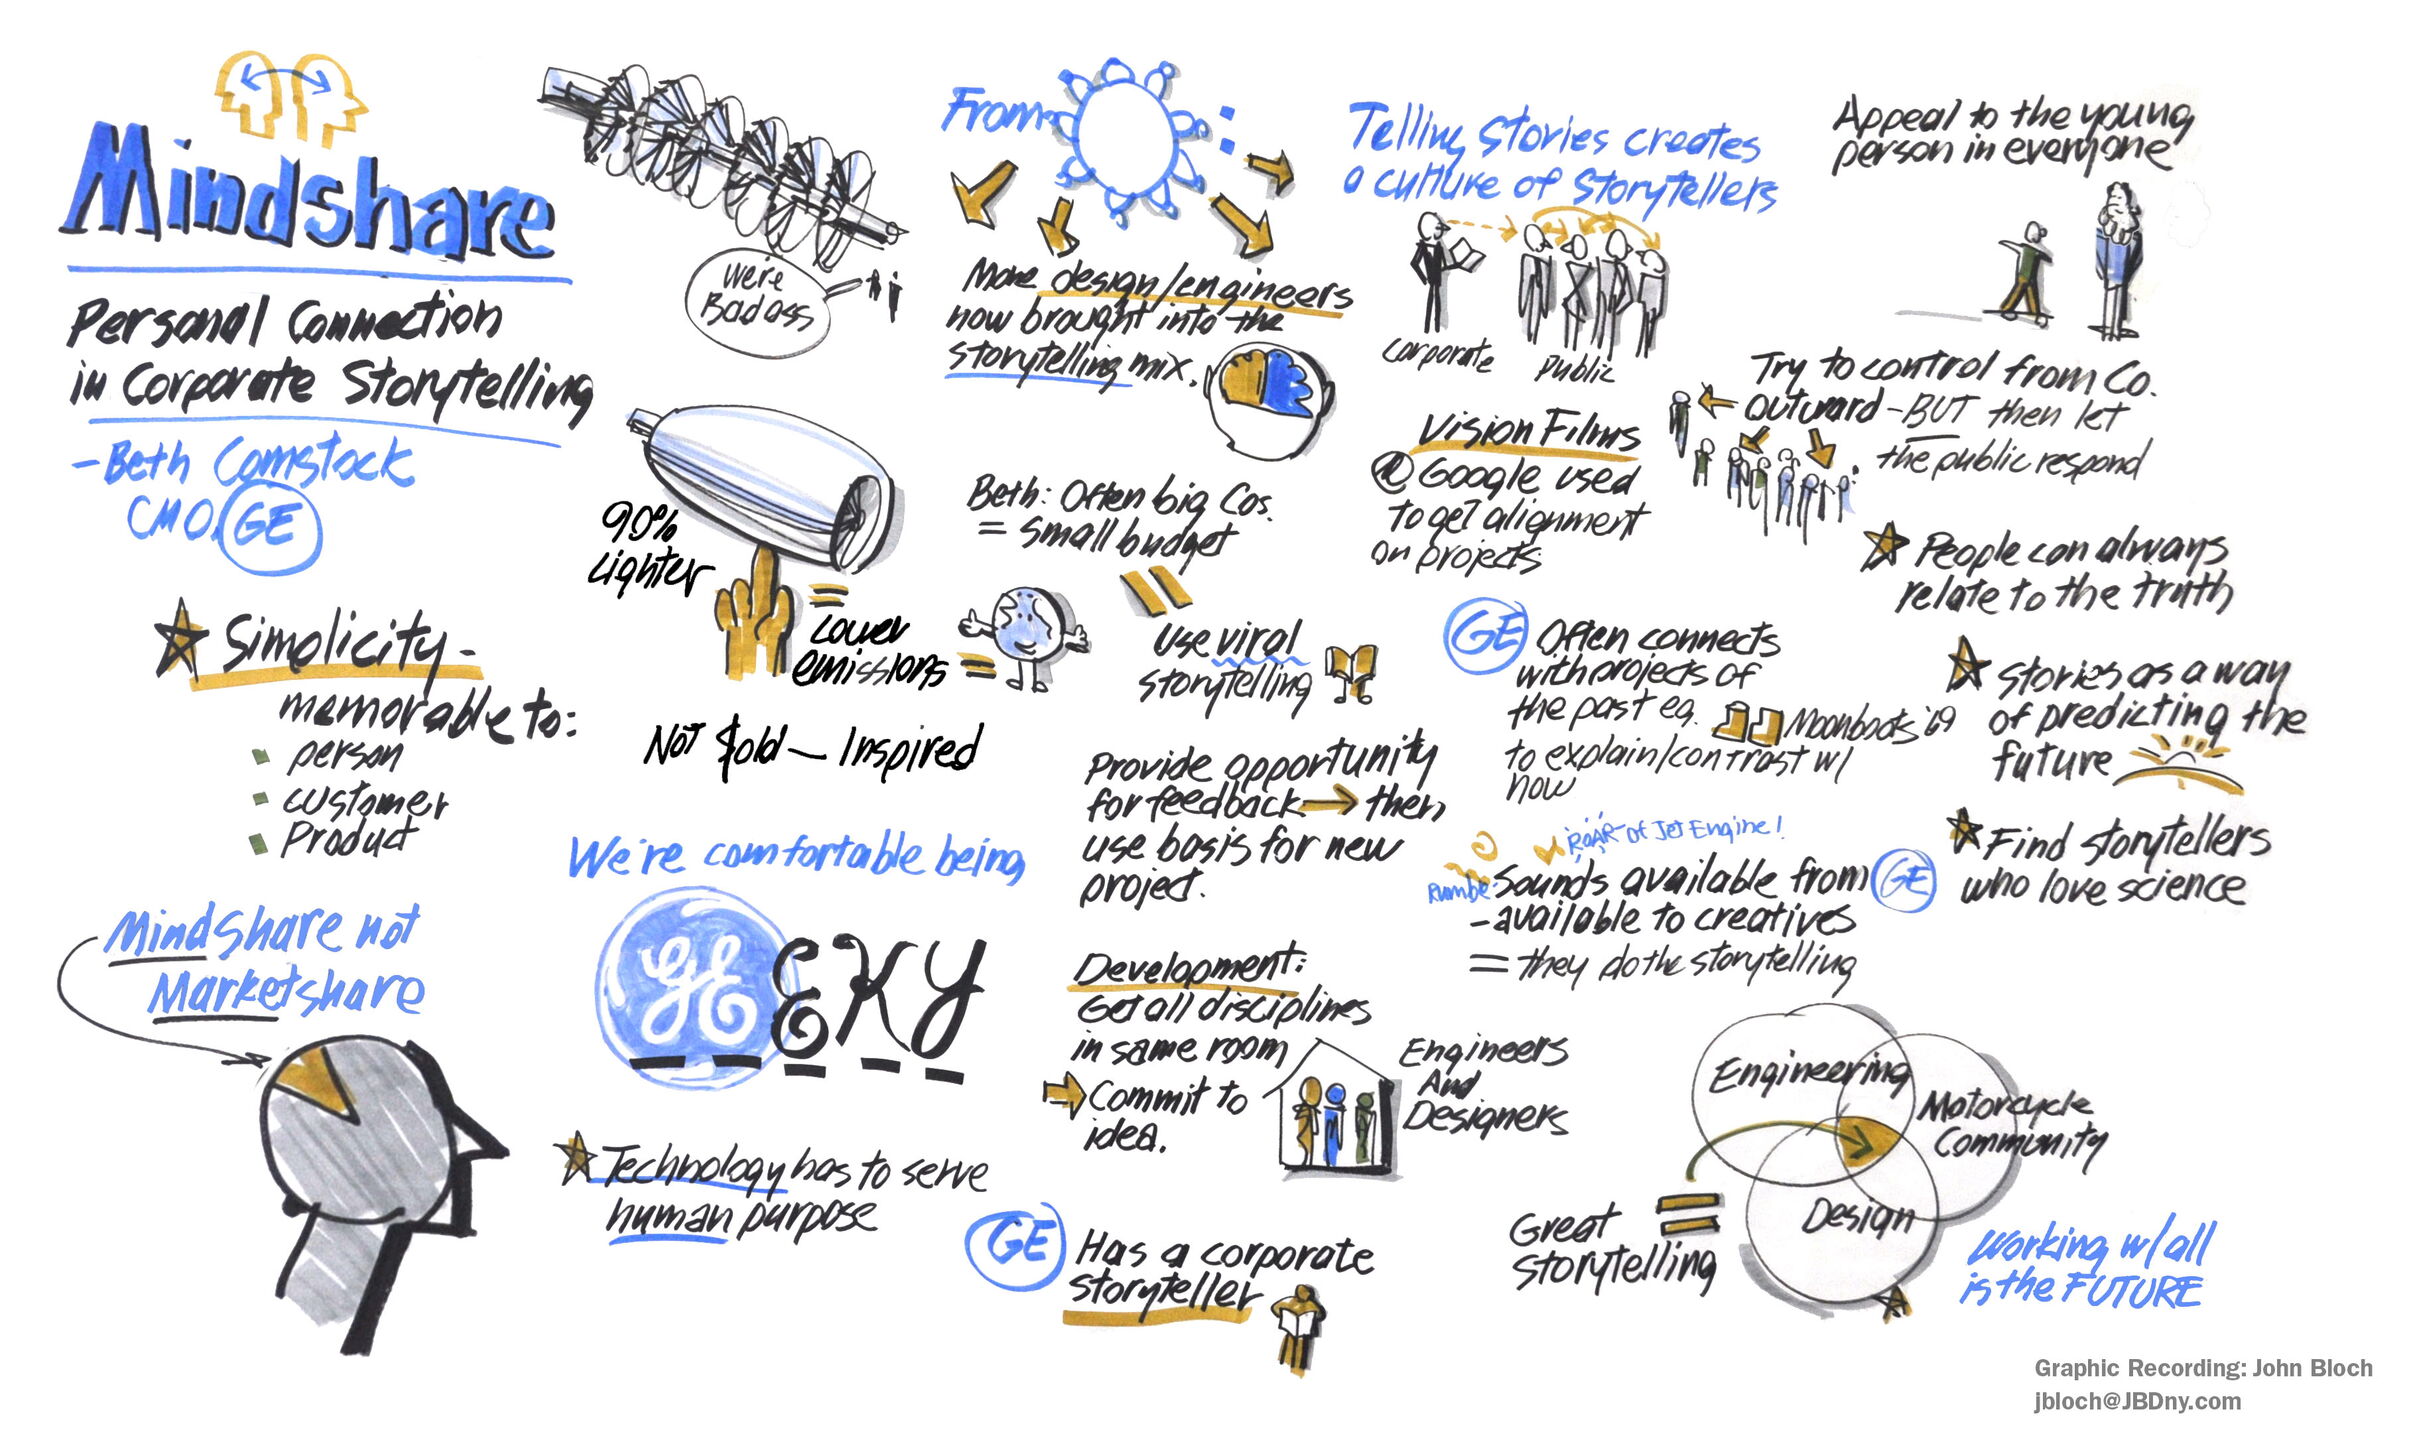 Mindshare
Personal Connection
in Corporate Storytelling
- Beth Comstock
CMO, GE
Simplicity -
memorable to:
person
customer
Product
Mindshare not
Marketshare
We're
Badass
90%
Lighter
=
Lower
emissions =
Not $old - Inspired
We're comfortable being
GEEKY
Technology has to serve
human purpose
From :
More design/engineers
now brought into the
storytelling mix.
Beth: Often big Cos.
= small budget
=
Use viral
storytelling
Provide opportunity
for feedback → then
use basis for new
project.
Development:
Get all disciplines
in same room
Commit to
idea.
Engineers
And
Designers
GE Has a corporate
storyteller
Telling Stories creates
a culture of Storytellers
Corporate
Public
Vision Films
@ Google used
to get alignment
on projects
GE Often connects
with projects of
the past eg. Moonboots '69
to explain/contrast w/
now
ROAR of Jet Engine!
Rumble
Sounds available from GE
- available to creatives
= they do the storytelling
Engineering
Motorcycle
Community
Design
Great =
Storytelling
Working w/ all
is the FUTURE
Appeal to the young
person in everyone
Try to control from Co.
outward - BUT then let
the public respond
People can always
relate to the truth
Stories as a way
of predicting the
future
Find storytellers
who love science
Graphic Recording: John Bloch
jbloch@JBDny.com